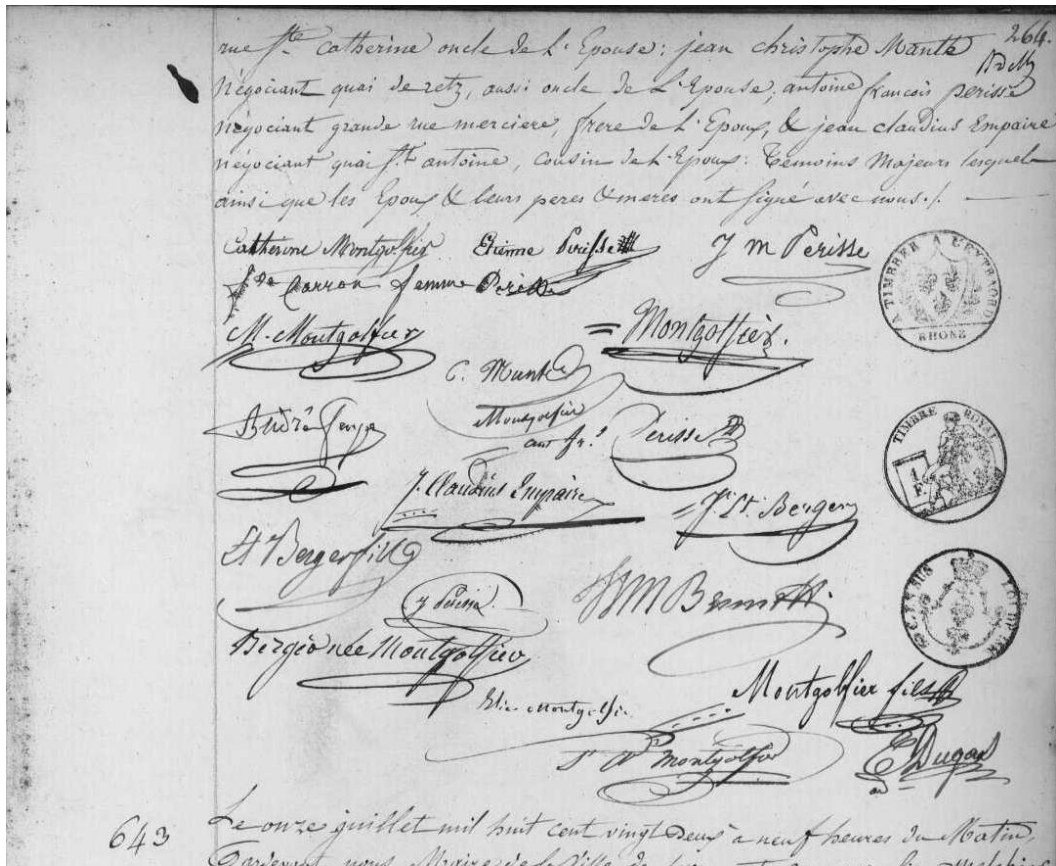 264.
rue Ste Catherine oncle de L'Epouse; jean christophe Manth
Négociant quai de retz, aussi oncle de L'Epouse; antoine francois perisse
négociant grande rue merciere, frere de L'Epoux, & jean claudius Empaire
négociant quai St antoine, cousin de L'Epoux: Témoins Majeurs lesquels
ainsi que les Epoux & leurs peres & meres ont signé avec nous ./.
Catherine Montgolfier Etienne Perisse J M Perisse
Carron femme Perisse
A TIMBRER A L'EXTRAORD.
RHONE
M. Montgolfier Montgolfier.
C.
André
Montgolfier
ant fs. Perisse
TIMBRE ROYAL
1
F.
J. Claudius Empaire J. Et. Berger
Et Berger fils
J Perisse
Bergér née Montgolfier
Montgolfier fils
Elie Montgolfier
Montgolfier Dugas
643
Le onze juillet mil huit cent vingt deux à neuf heures du Matin,
Pardevant nous Maire de la Ville de